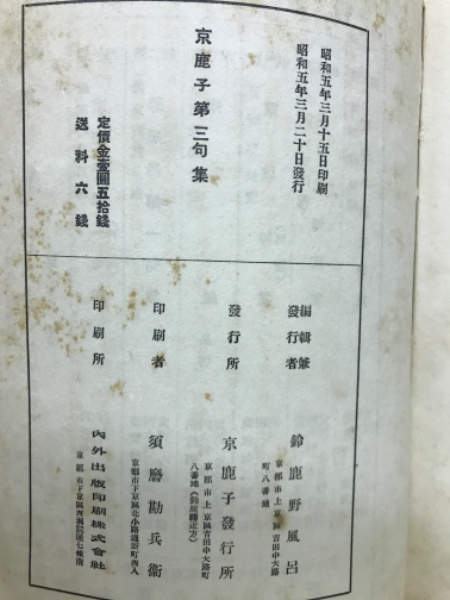 昭和五年三月十五日印刷
昭和五年三月二十日發行
京鹿子第三句集
定價金壹圓五拾錢
送料六錢
編輯兼
發行者
鈴鹿野風呂
京都市上京區吉田中大路
町八番地
發行所
京鹿子發行所
京都市上京區吉田中大路町
八番地(鈴鹿野風呂方)
印刷者
須磨勘兵衞
京都市下京區北小路通新町西入
印刷所
內外出版印刷株式會社
京都市下京區西洞院通七條南